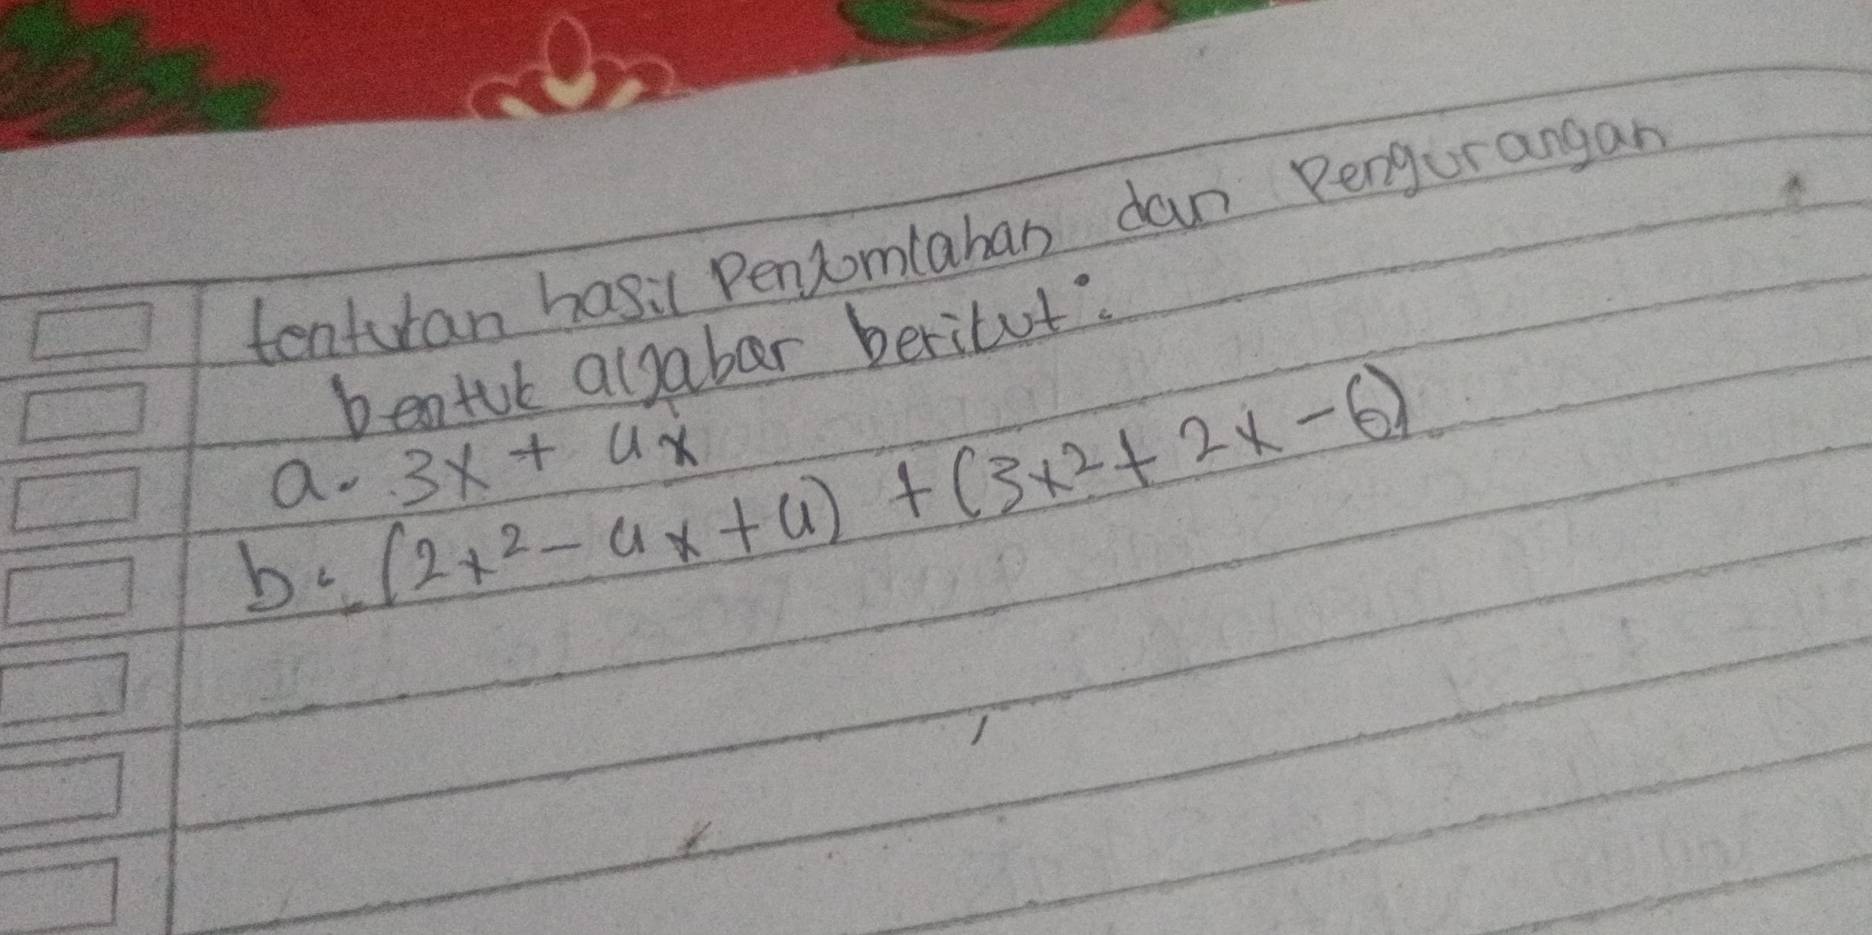 tentutan hasil Penjomlahan dan Pengurangan
bentuk algabar berikut:
a. 3x + 4x
b. (2x² - 4x + 4) + (3x² + 2x - 6)